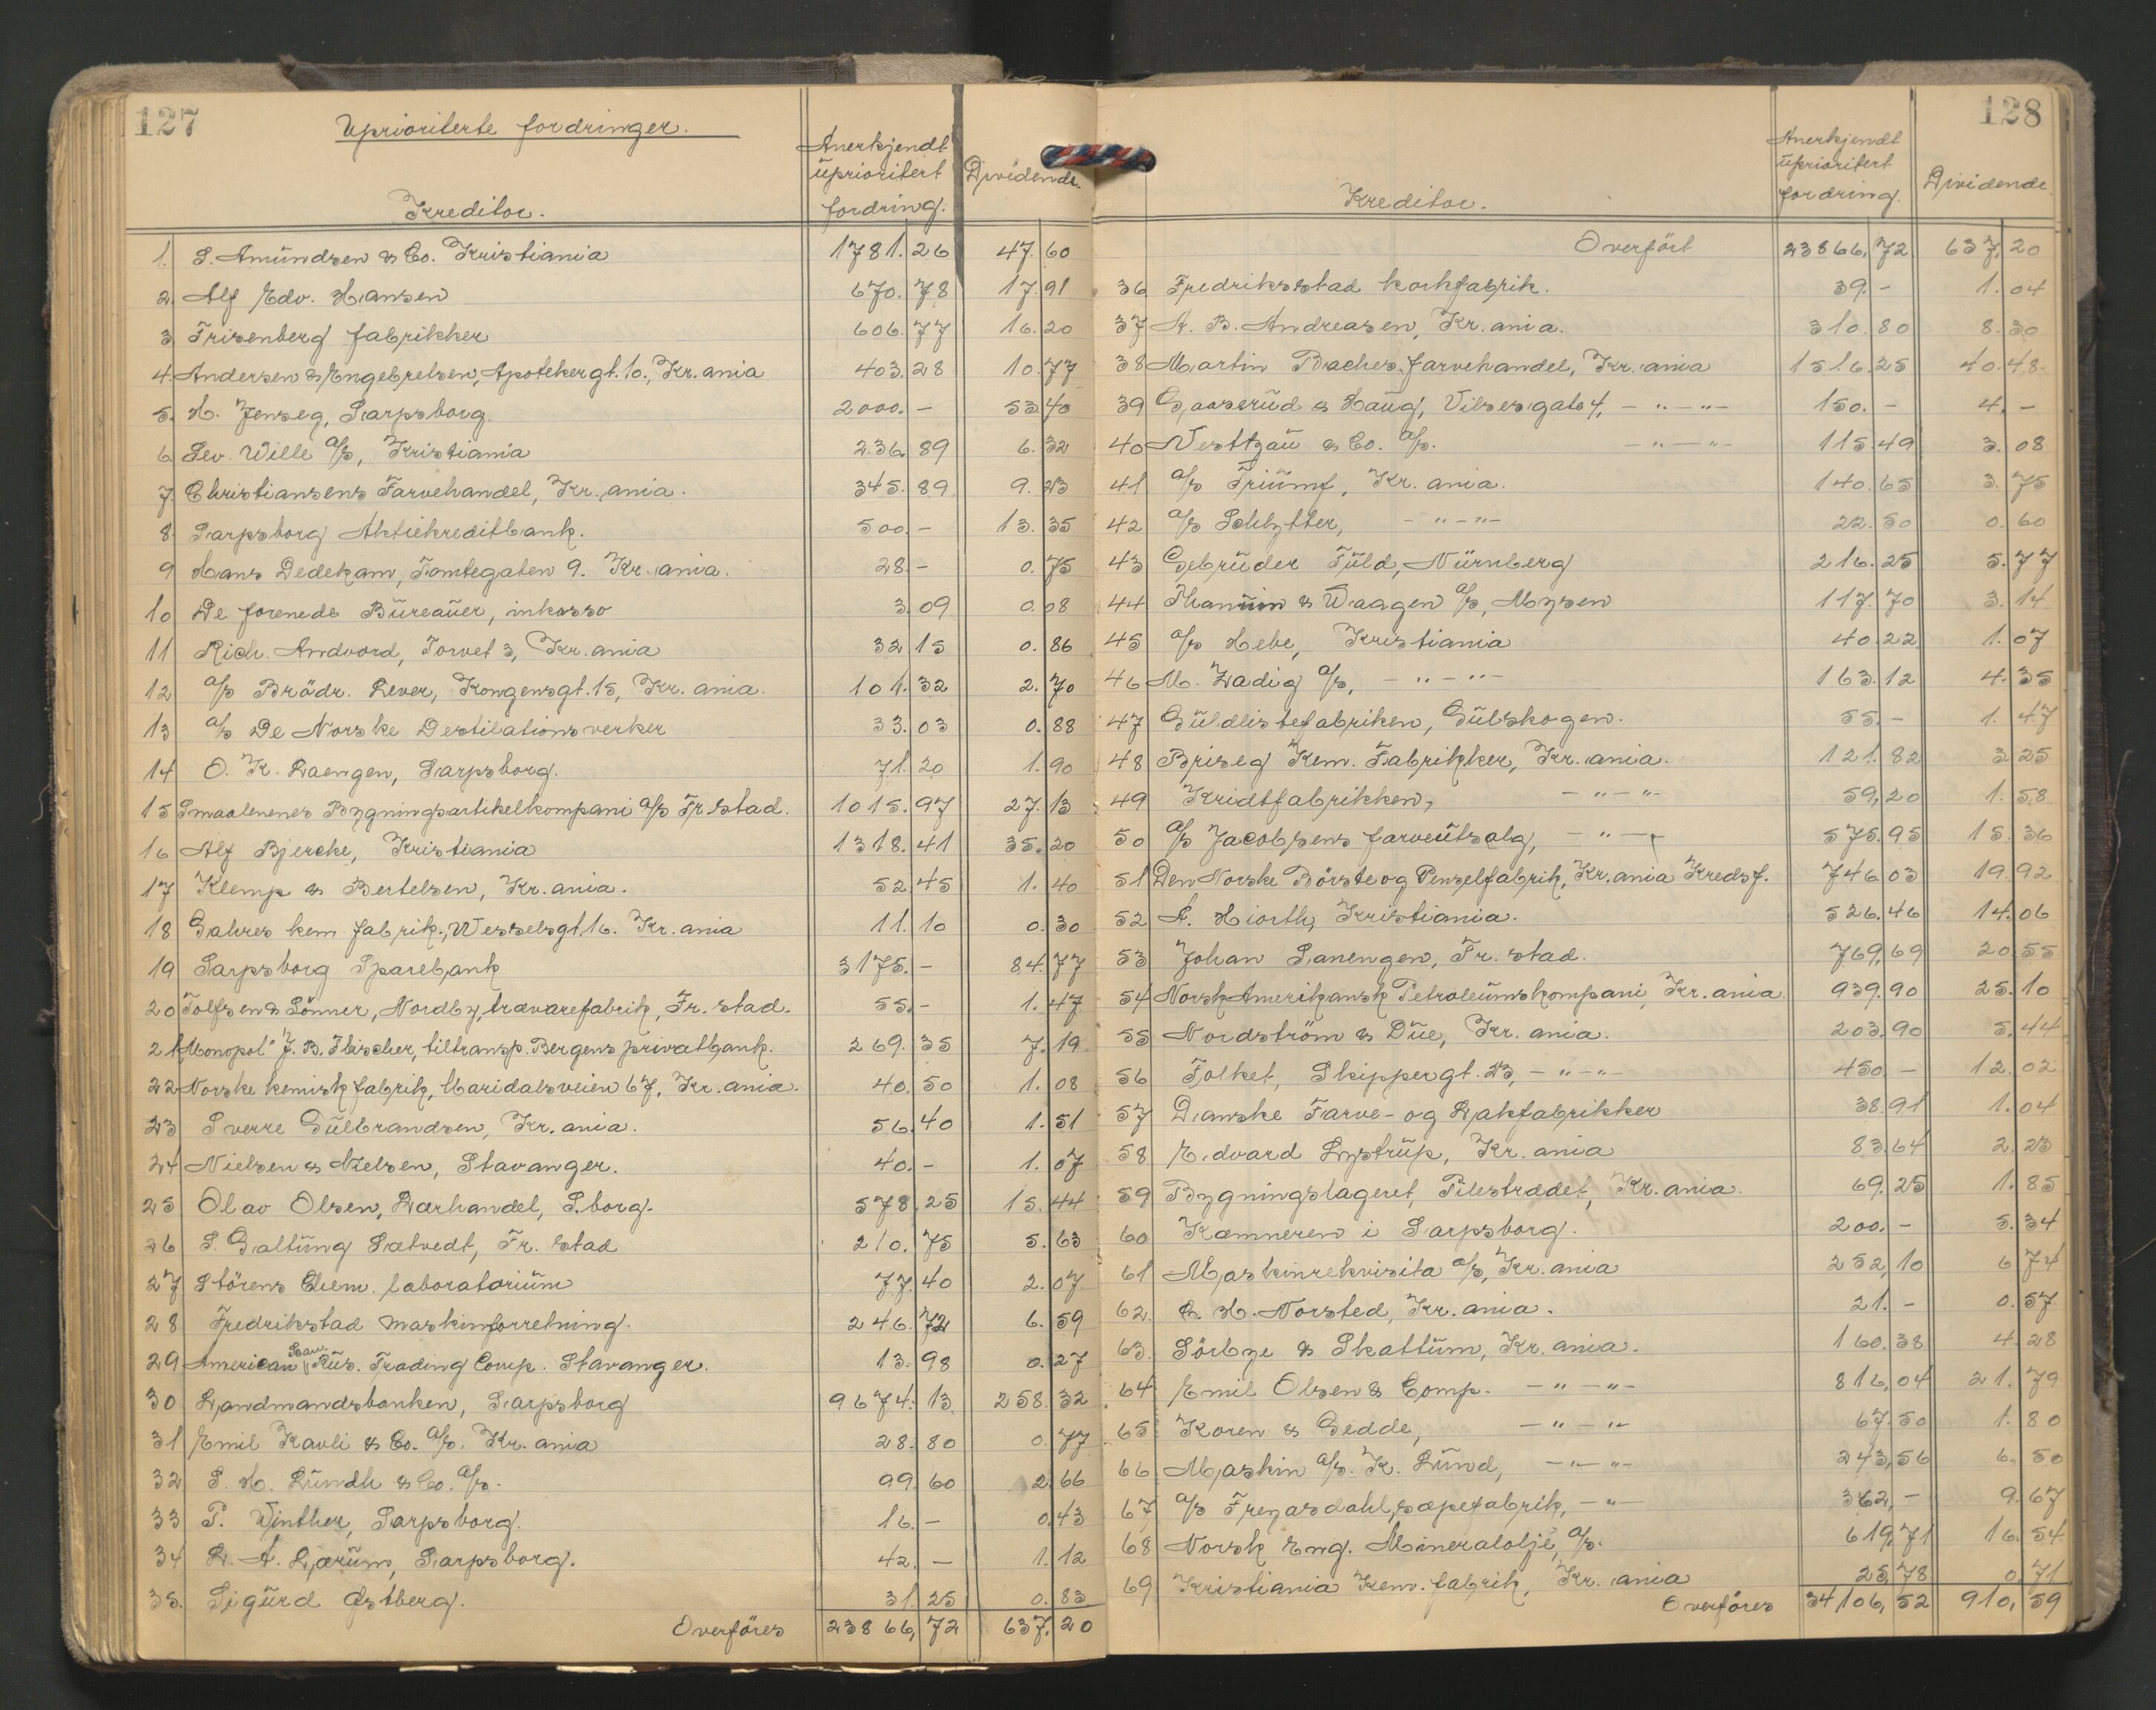 127
Uprioriterte fordringer.
Kreditor. Anerkjendt uprioritert fordring. Dividende.
1. S. Amundsen & Co. Kristiania 1781.26 47.60
2. Alf Edv. Hansen 670.78 17.91
3 Frisenberg fabrikker 606.77 16.20
4. Andersen & Engebretsen, Apotekergt. 10., Kr.ania 403.28 10.77
5. H. Jenseg, Sarpsborg. 2000.- 53.40
6 Sev. Wille A/S, Kristiania 236.89 6.32
7. Christiansens Farvehandel, Kr.ania. 345.89 9.23
8. Sarpsborg Aktiekreditbank. 500.- 13.35
9 Hans Dedekam, Tomtegaten 9. Kr.ania. 28.- 0.75
10 De forenede Bureauer, inkasso 3.09 0.08
11 Rich. Andvord, Torvet 3, Kr.ania 32.15 0.86
12 A/S Brödr. Lever, Kongensgt. 15, Kr.ania. 101.32 2.70
13 A/S De Norske Destilationsverker 33.03 0.88
14 O. K. Laengen, Sarpsborg. 71.20 1.90
15 Smaalenenes Bygningsartikelkompani A/S Fr.stad. 1015.97 27.13
16 Alf Bjercke, Kristiania 1318.41 35.20
17 Klemp & Bertelsen, Kr.ania. 52.45 1.40
18 Sahres kem fabrik., Wesselsgt. 16. Kr.ania 11.10 0.30
19 Sarpsborg Sparebank 3175.- 84.77
20 Tolfsen & Sönner, Nordby, trævarefabrik, Fr.stad. 55.- 1.47
21 "Monopol" J. B. Fliscker, tiltransp. Bergens privatbank. 269.35 7.19
22 Norske kemisk fabrik, Maridalsveien 67, Kr.ania. 40.50 1.08
23 Sverre Gulbrandsen, Kr.ania. 56.40 1.51
24 Nielsen & Nielsen, Stavanger. 40.- 1.07
25 Olav Olsen, Lærhandel, S.borg. 578.25 15.44
26 S. Galtung Sætvedt, Fr.stad 210.75 5.63
27 Störens Chem. laboratorium 77.40 2.07
28 Fredrikstad maskinforretning. 246.72 6.59
29 American Rus. Trading Comp. Stavanger. 13.98 0.27
30 Landmandsbanken, Sarpsborg 9674.13 258.32
31 Emil Kavli & Co. A/S. Kr.ania 28.80 0.77
32 S. H. Lundh & Co. A/S. 99.60 2.66
33 P. Winther, Sarpsborg. 16.- 0.43
34 L. A. Lærum, Sarpsborg. 42.- 1.12
35. Sigurd Østberg. 31.25 0.83
Overföres 23866,72 637.20
128
Kreditor. Anerkjendt uprioritert fordring. Dividende.
Overfört 23866,72 637,20
36 Fredriksstad korkfabrik. 39.- 1.04
37 A. B. Andreasen, Kr.ania. 310.80 8.30
38 Martin Baches farvehandel, Kr.ania 1516.25 40.48
39 Gaaserud & Haug, Vibesgate 4, -"-"- 150.- 4.-
40 Nesttzau & Co. A/S. -"-"- 115.49 3.08
41 A/S Triumf, Kr.ania. 140.65 3.75
42 A/S Schlytter, -"-"- 22.50 0.60
43 Gebrüder Füld, Nürnberg 216.25 5.77
44 Thanum & Waagen A/S, Mysen 117.70 3.14
45 A/S Hebe, Kristiania 40.22 1.07
46 M. Zadig A/S, -"-"- 163.12 4.35
47 Guldlistefabriken, Gulskogen. 55.- 1.47
48 Briseg Kem. Fabrikker, Kr.ania. 121.82 3.25
49 Kridtfabrikken, -"-"- 59,20 1.58
50 A/S Jacobsens farveutsalg, -"-"- 575.95 15.36
51 Den Norske Börste og Penselfabrik, Kr.ania Kredsf. 746.03 19.92
52 A. Hiorth, Kristiania. 526.46 14.06
53 Johan Sanengen, Fr.stad. 769,69 20.55
54 Norsk Amerikansk Petroleumskompani, Kr.ania 939.90 25.10
55 Nordström & Due, Kr.ania. 203.90 5.44
56 Folket, Skippergt. 23, -"-"- 450 - 12.02
57 Danske Farve- og Lakfabrikker 38.91 1.04
58 Edvard Lystrup, Kr.ania 83.64 2.23
59 Bygningslageret, Pilestrædet, Kr.ania. 69.25 1.85
60 Kæmneren i Sarpsborg. 200.- 5.34
61 Maskinrekvisita A/S, Kr.ania 252,10 6.74
62. H. Norsted, Kr.ania. 21.- 0.57
63. Sörbye & Skattum, Kr.ania. 160.38 4.28
64 Emil Olsen & Comp. -"-"- 816,04 21.79
65 Koren & Gedde, -"-"- 67.50 1.80
66 Maskin A/S. K. Lund, -"-"- 243,56 6.50
67 A/S Freyasdahl, sæpefabrik, -"- 362,- 9.67
68 Norsk Eng. Mineralolje A/S. 619,71 16.54
69 Kristiania Kem. fabrik, Kr.ania 25,78 0.71
Overföres 34106,52 910,59